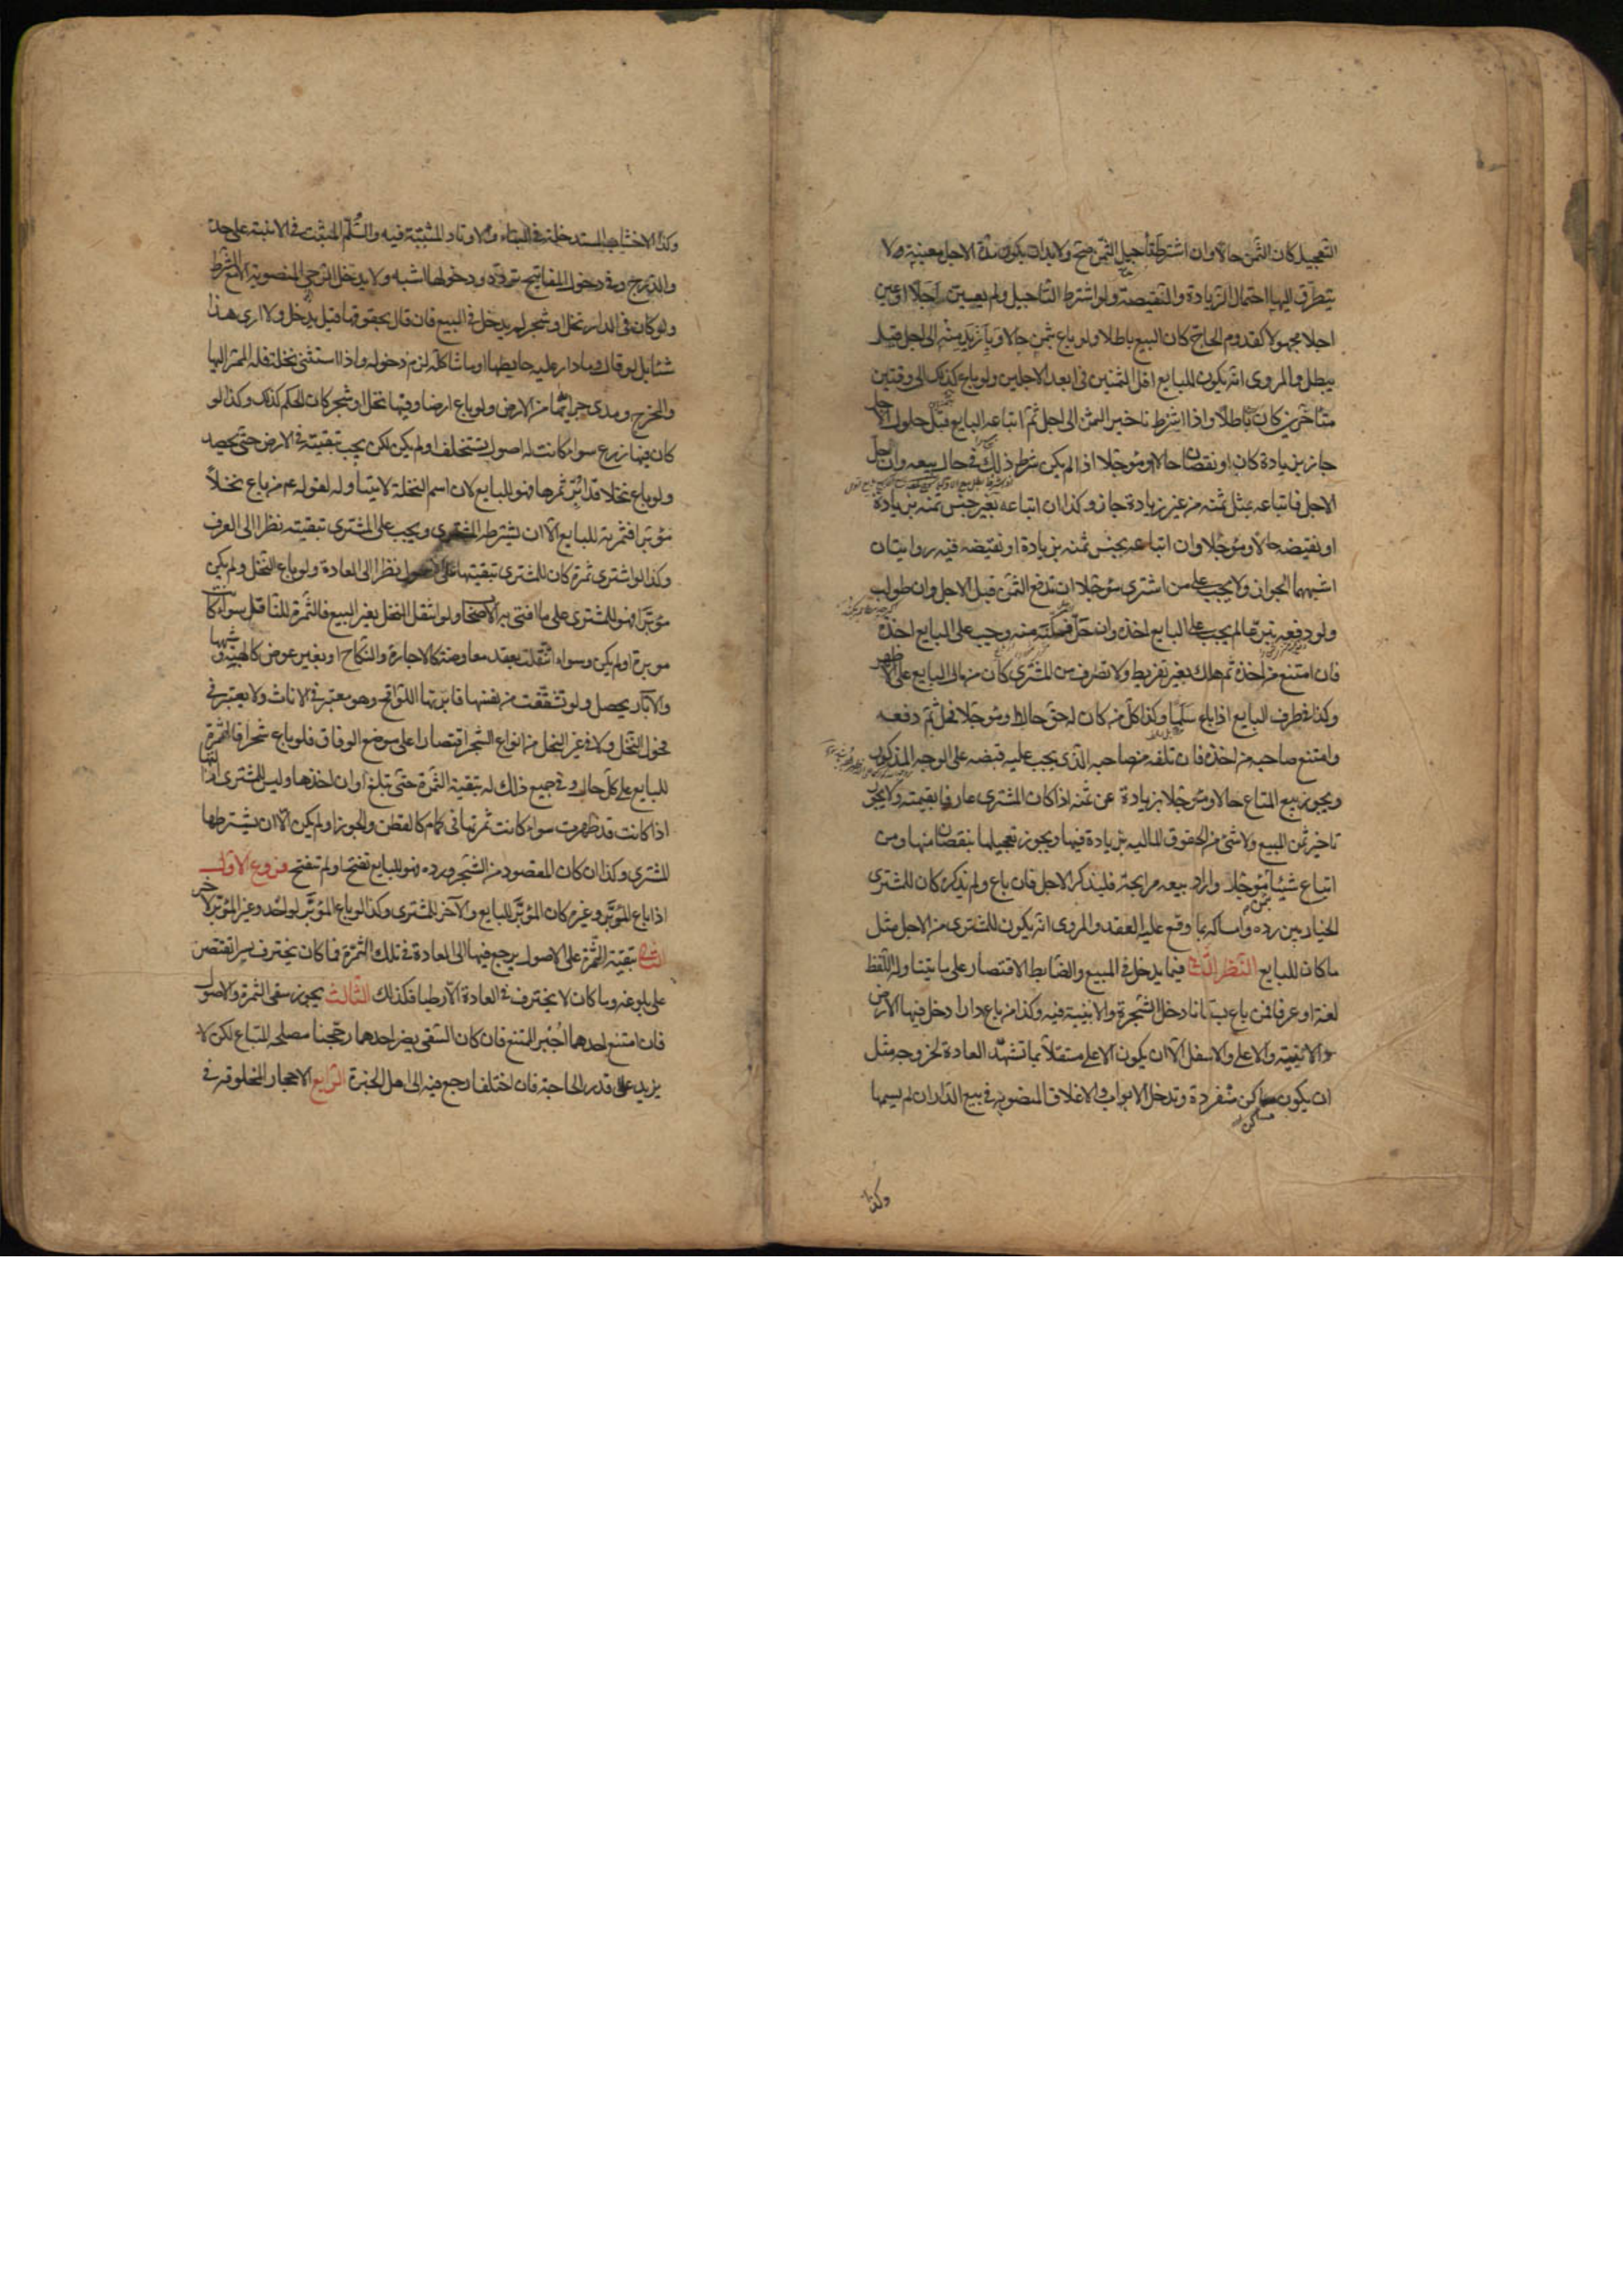 التعجيل كان الثمن حالا وان اشترط تأجيل الثمن صح ولا بد ان يكون مدة الاجل معينة لا
يتطرق اليها احتمال الزيادة والنقيصة ولو اشترط التأجيل ولم يعين اجلا او عين
اجلا مجهولا كقدوم الحاج كان البيع باطلا ولو باع بثمن حالا وبازيد منه الى اجل قيل
يبطل والمروى انه يكون للبايع اقل الثمنين فى ابعد الاجلين ولو باع كذلك الى وقتين
متأخرين كان باطلا واذا اشترط تاخير الثمن الى اجل ثم ابتاعه البايع قبل حلول الاجل
جاز بزيادة كان او نقصان حالا ومؤجلا اذا لم يكن شرط ذلك فى حال بيعه وان حل
الاجل فابتاعه بمثل ثمنه من غير زيادة جاز وكذا ان ابتاعه بغير جنس ثمنه بزيادة
او نقيصه حالا ومؤجلا وان ابتاعه بجنس ثمنه بزيادة او نقيصه فيه روايتان
اشبههما الجواز ولا يجب على من اشترى مؤجلا ان يدفع الثمن قبل الاجل وان طولب
ولو دفعه تبرعا لم يجب على البايع اخذه وان حل فمكنه منه وجب على البايع اخذه
فان امتنع من اخذه ثم هلك بغير تفريط ولا تصرف من المشترى كان من مال البايع على الاظهر
وكذا فى طرف البايع اذا باع سلما وكذا كل من كان له حق حال او مؤجلا فحل ثم دفعه
وامتنع صاحبه من اخذه فان تلفه من صاحبه الذى يجب عليه قبضه على الوجه المذكور
ويجوز بيع المتاع حالا ومؤجلا بزيادة عن ثمنه اذا كان المشترى عارفا بقيمته ولا يجوز
تاخير ثمن المبيع ولا شئ من الحقوق المالية بزيادة فيها ويجوز تعجيلها بنقصان منها ومن
ابتاع شيئا مؤجلا واراد بيعه مرابحة فليذكر الاجل فان باع ولم يذكره كان للمشترى
الخيار بين رده وامساكه بما وقع عليه العقد والمروى انه يكون للمشترى من الاجل مثل
ما كان للبايع النظر الثانى فيما يدخل فى المبيع والضابط الاقتصار على ما يتناوله اللفظ
لغة او عرفا فمن باع بستانا دخل الشجرة والابنية فيه وكذا من باع دارا دخل فيها الارض
والابنية والاعلى والاسفل الا ان يكون الاعلى مستقلا بما تشهد العادة لخروجه مثل
ان يكون مساكن منفردة وتدخل الابواب والاغلاق المنصوبة فى بيع الدار ان لم يسمها
مساكن
وكذا
وكذا الاخشاب المستدخلة فى البناء والاوتاد المثبتة فيه والسلم المثبت فى الابنية على حد
والدرج وفى دخول المفاتيح تردد ودخولها اشبه ولا يدخل الرحى المنصوبة الا مع الشرط
ولو كان فى الدار نخل او شجر لم يدخل فى المبيع فان قال بحقوقها قيل يدخل ولا ارى هذا
شئا بل لو قال وما دار عليه حايطها او ما شاكله لزم دخوله واذا استثنى نخلة فله الممر اليها
والمخرج ومدى جرايدها من الارض ولو باع ارضا وفيها نخل او شجر كان الحكم كذلك وكذا لو
كان فيها زرع سواء كانت له اصول يستخلف او لم يكن لكن يجب تبقيته فى الارض حتى يحصد
ولو باع نخلا قد ابر ثمرها فهو للبايع لان اسم النخلة لا يتناوله لقوله ع من باع نخلا
مؤبرا فثمرته للبايع الا ان يشترطه المشترى ويجب على المشترى تبقيته نظرا الى العرف
وكذا لو اشترى ثمرة كان للمشترى تبقيتها على الاصول نظرا الى العادة ولو باع النخل ولم يكن
مؤبرا فهو للمشترى على ما افتى به الاصحاب ولو انتقل النخل بغير البيع فالثمرة للناقل سواء كانت
موبرة او لم يكن وسواء انتقلت بعقد معاوضة كالاجارة والنكاح او بغير عوض كالهبة وشبهها
والآبار يحصل ولو تشققت من نفسها فابرتها اللواقح وهو معتبر فى الاناث ولا يعتبر فى
فحول النخل ولا فى غير النخل من انواع الشجر اقتصارا على موضع الوفاق فلو باع شجرا فالثمرة
للبايع على كل حال وفى جميع ذلك له تبقية الثمرة حتى تبلغ اوان اخذها وليس للمشترى ازالتها
اذا كانت قد ظهرت سواء كانت ثمرتها فى كمام كالقطن والجوز او لم يكن الا ان يشترطها
المشترى وكذا ان كان المقصود من الشجر ورده فهو للبايع تفتح او لم تفتح فروع الاول
اذا باع المؤبر وغيره كان المؤبر للبايع والآخر للمشترى وكذا لو باع المؤبر لواحد وغير المؤبر لآخر
الثانى تبقية الثمرة على الاصول يرجع فيها الى العادة فى تلك الثمرة فما كان يخترف بسرا يقتصر
على بلوغه وما كان لا يخترف فى العادة الا رطبا فكذلك الثالث يجوز سقى الثمرة والاصول
فان امتنع احدهما اجبر الممتنع فان كان السقى يضر احدهما رجحنا مصلحة المبتاع لكن لا
يزيد على قدر الحاجة فان اختلفا رجع فيه الى اهل الخبرة الرابع الاحجار المخلوقة فى